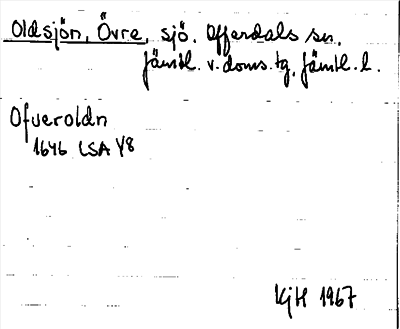 Oldsjön, Övre, sjö. Offerdals sn.
Jämtl. v. doms. tg, Jämtl. l.
Ofveroldn
1646 LSA Y8
KjH 1967